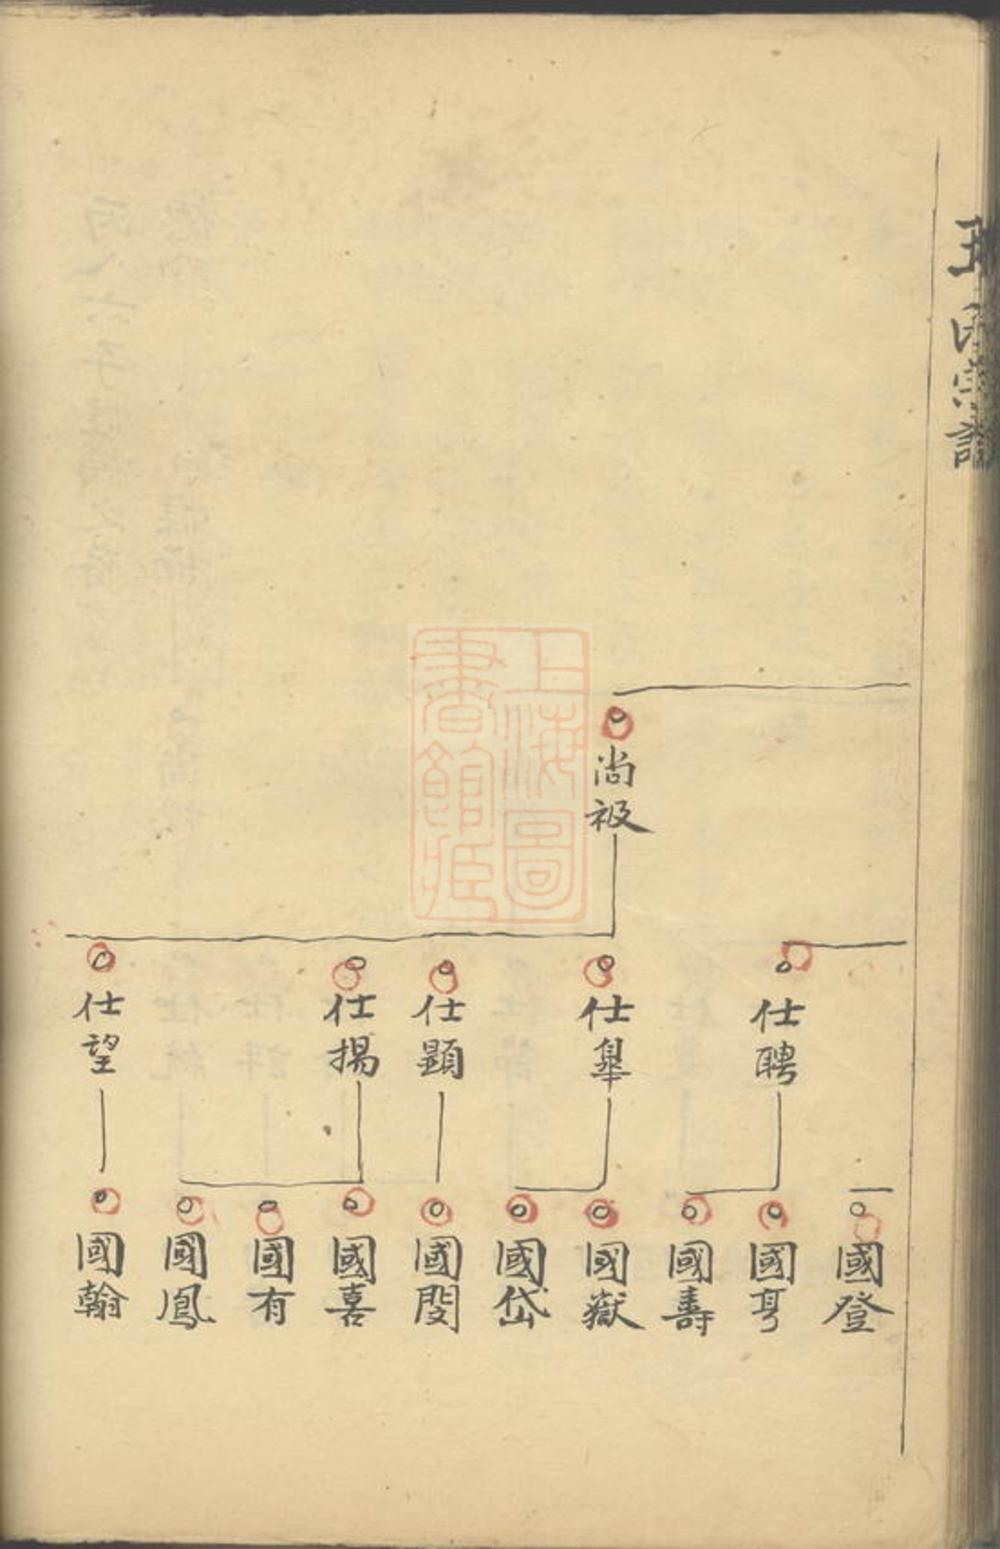 氏宗譜
尚衱
仕聘
仕皋
仕顯
仕揚
仕望
國登
國亨
國壽
國嶽
國岱
國閔
國喜
國有
國鳳
國翰
上海圖
書館藏